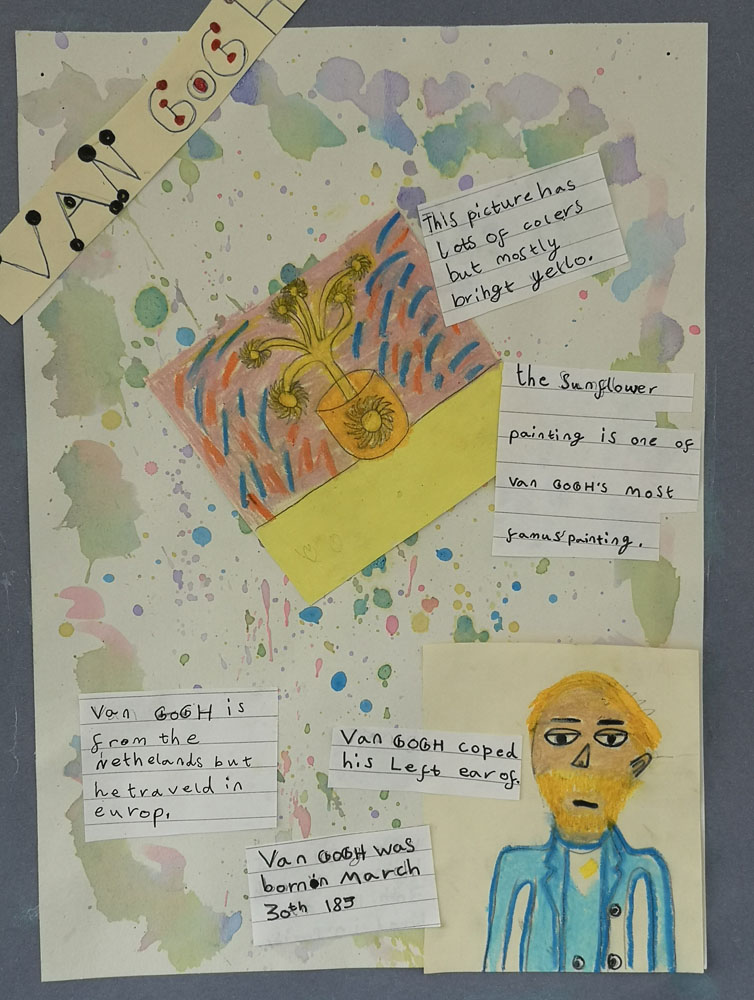 VAN GOGH
This picture has
Lots of colers
but mostly
brihgt yello.
the Sunflower
painting is one of
Van GOGH's most
famus painting.
Van GOGH is
from the
Nethelands but
he traveld in
europ.
Van GOGH coped
his Left ear of.
Van GOGH was
born in March
30th 185